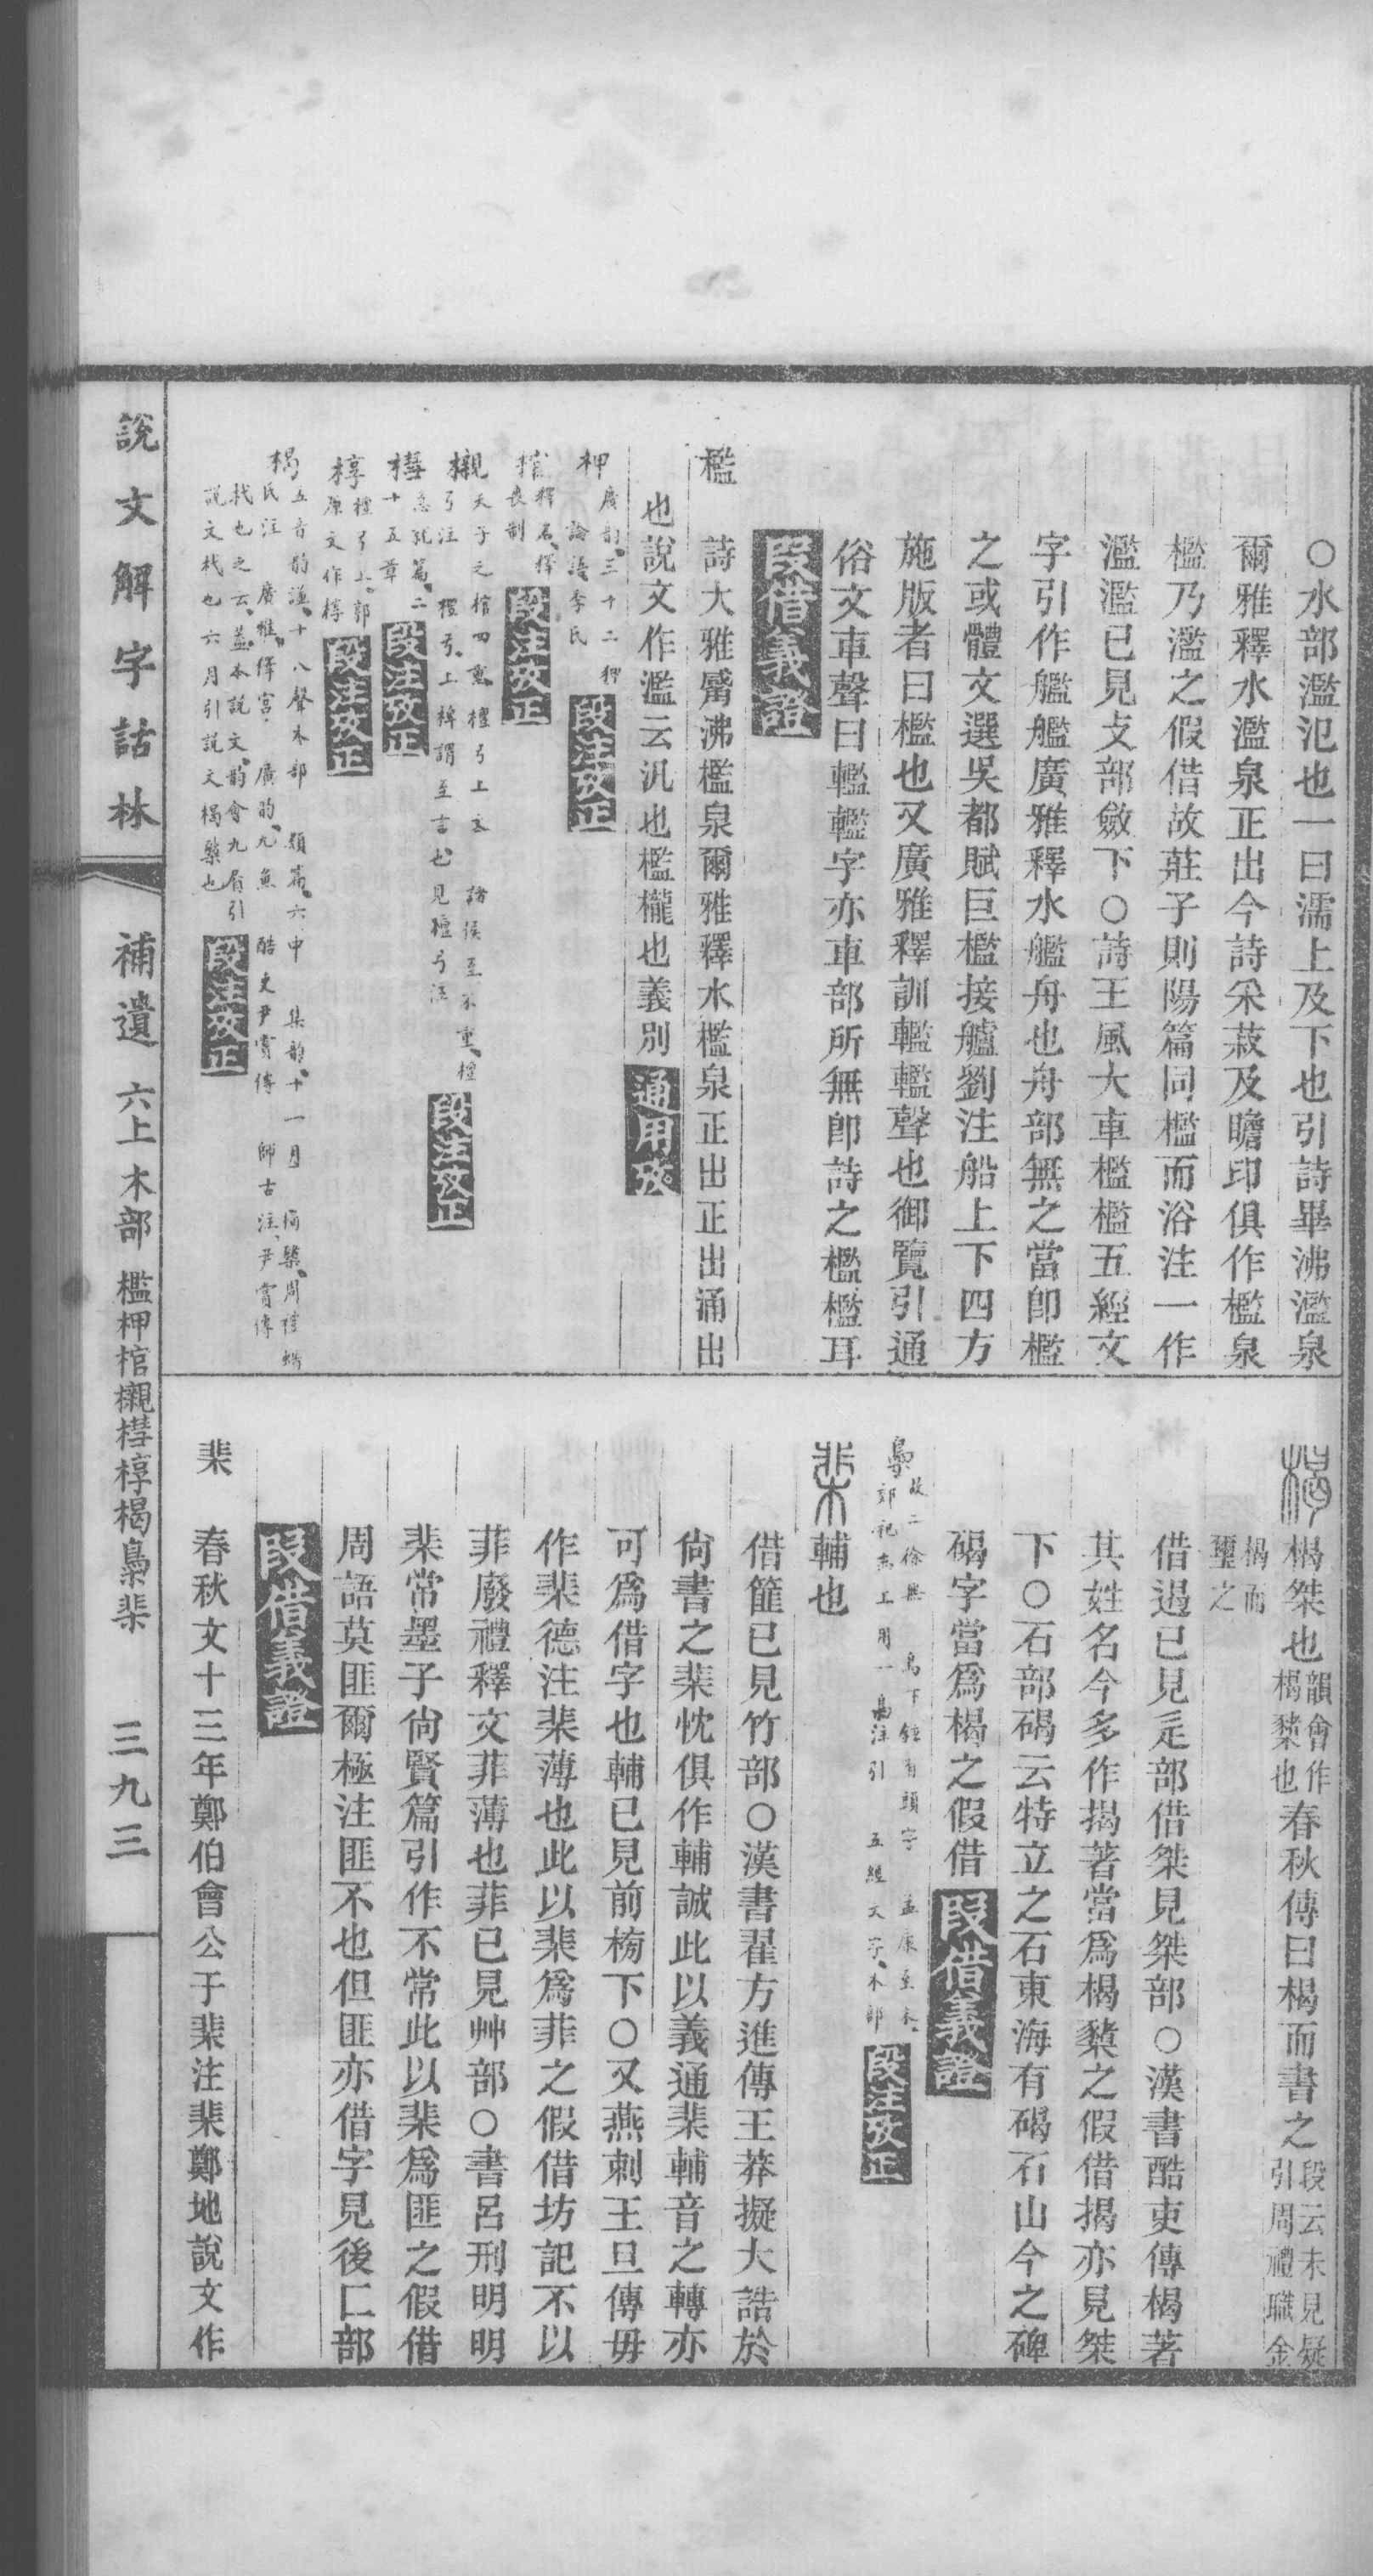 ○水部濫氾也一曰濡上及下也引詩畢沸濫泉
爾雅釋水濫泉正出今詩采菽及瞻卬俱作檻泉
檻乃濫之假借故莊子則陽篇同檻而浴注一作
濫濫已見攴部斂下○詩王風大車檻檻五經文
字引作艦艦廣雅釋水艦舟也舟部無之當卽檻
之或體文選吳都賦巨檻接艫劉注船上下四方
施版者曰檻也又廣雅釋訓轞轞聲也御覽引通
俗文車聲曰轞轞字亦車部所無卽詩之檻檻耳
段借義證
檻
詩大雅觱沸檻泉爾雅釋水檻泉正出正出涌出
也說文作濫云汎也檻櫳也義別 通用攷
柙 廣韵三十二狎 論語季氏 段注攷正
棺 釋名釋喪制 段注攷正
櫬 天子之棺四重 檀弓上文 諸侯至不重檀
弓注 檀弓上椑謂至言也見檀弓注 段注攷正
槥 急就篇二十五章 段注攷正
椁 檀弓上郭原文作槨 段注攷正
楬 五音韵譜十八聲木部 類篇六中 集韵十一月 楬櫫周禮蜡
氏注 廣雅釋宮 廣韵九魚 酷吏尹賞傳 師古注尹賞傳
杙也之云葢本說文韵會九屑引
說文杙也六月引說文楬櫫也 段注攷正
楬 楬桀也韻會作楬櫫也春秋傳曰楬而書之段云未見疑引周禮職金
楬而璽之
借遏已見辵部借桀見桀部○漢書酷吏傳楬著
其姓名今多作揭著當爲楬櫫之假借揭亦見桀
下○石部碣云特立之石東海有碣石山今之碑
碣字當爲楬之假借 段借義證
梟 故二徐無 鳥下 有頭字 孟康至木
郊祀志上用一梟注引 五經文字木部 段注攷正
棐 輔也
借篚已見竹部○漢書翟方進傳王莽擬大誥於
尙書之棐忱俱作輔誠此以義通棐輔音之轉亦
可爲借字也輔已見前榜下○又燕刺王旦傳毋
作棐德注棐薄也此以棐爲菲之假借坊記不以
菲廢禮釋文菲薄也菲已見艸部○書呂刑明明
棐常墨子尙賢篇引作不常此以棐爲匪之假借
周語莫匪爾極注匪不也但匪亦借字見後匸部
段借義證
棐
春秋文十三年鄭伯會公于棐注棐鄭地說文作
說文解字詁林
補遺 六上 木部 檻柙棺櫬槥椁楬梟棐
三九三